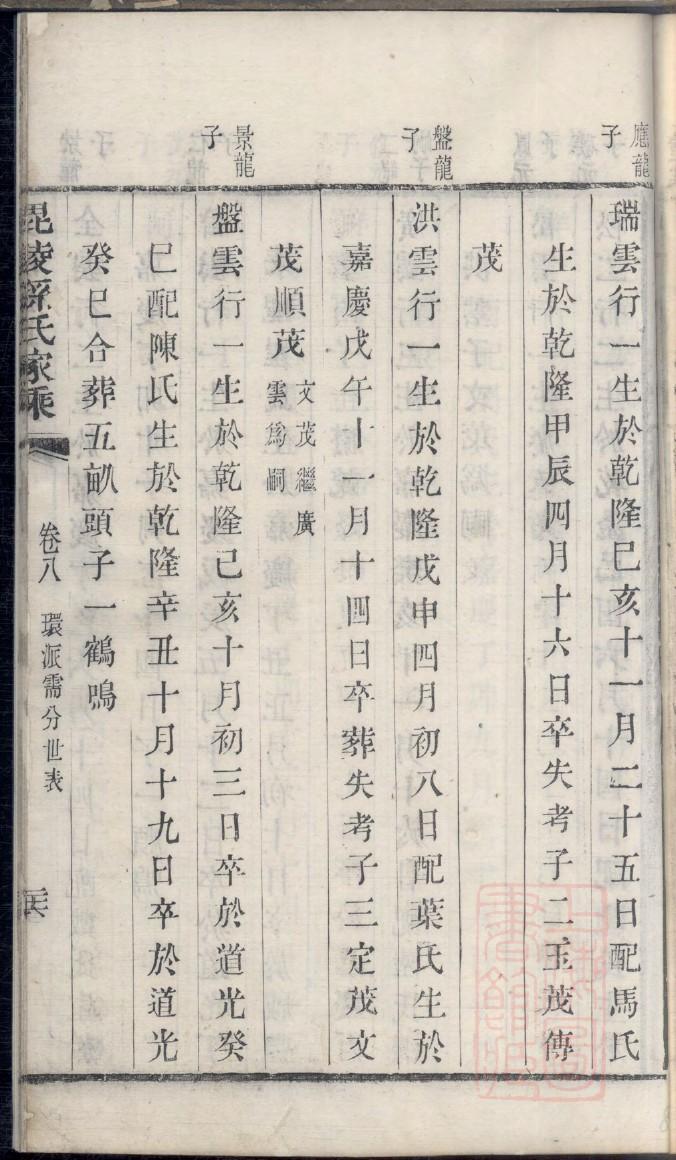 應龍子
瑞雲行一生於乾隆己亥十一月二十五日配馬氏
生於乾隆甲辰四月十六日卒失考子二玉茂傳
茂
盤龍子
洪雲行一生於乾隆戊申四月初八日配葉氏生於
嘉慶戊午十一月十四日卒葬失考子三定茂文
茂順茂
文茂繼廣
雲爲嗣
景龍子
盤雲行一生於乾隆己亥十月初三日卒於道光癸
巳配陳氏生於乾隆辛丑十月十九日卒於道光
癸巳合葬五畝頭子一鶴鳴
毘陵孫氏家乘
卷八
環派需分世表